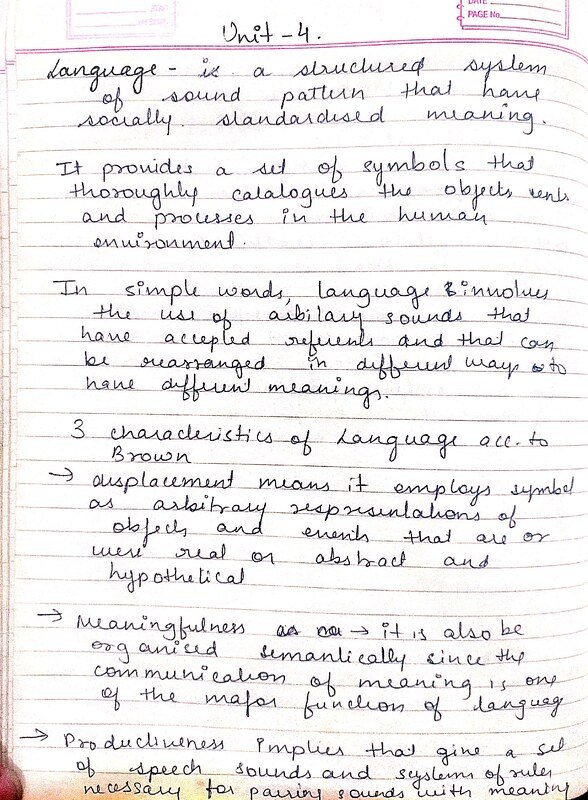 DATE
PAGE No.
Unit - 4.
Language - is a structured system
of sound pattern that have
socially standardised meaning.
It provides a set of symbols that
thoroughly catalogues the objects
and processes in the human
environment.
In simple words, language involves
the use of arbilary sounds that
have accepted referents and that can
be rearranged in different ways to
have different meanings.
3 characteristics of Language acc. to
Brown
→ displacement means it employs symbol
as arbitrary respresentations of
objects and events that are or
were real or abstract and
hypothetical
→ Meaningfulness → it is also be
organised semantically since the
communication of meaning is one
of the major function of languag
→ Productiveness implies that give a set
of speech sounds and systems of rules
necessary for pairing sounds with meaning